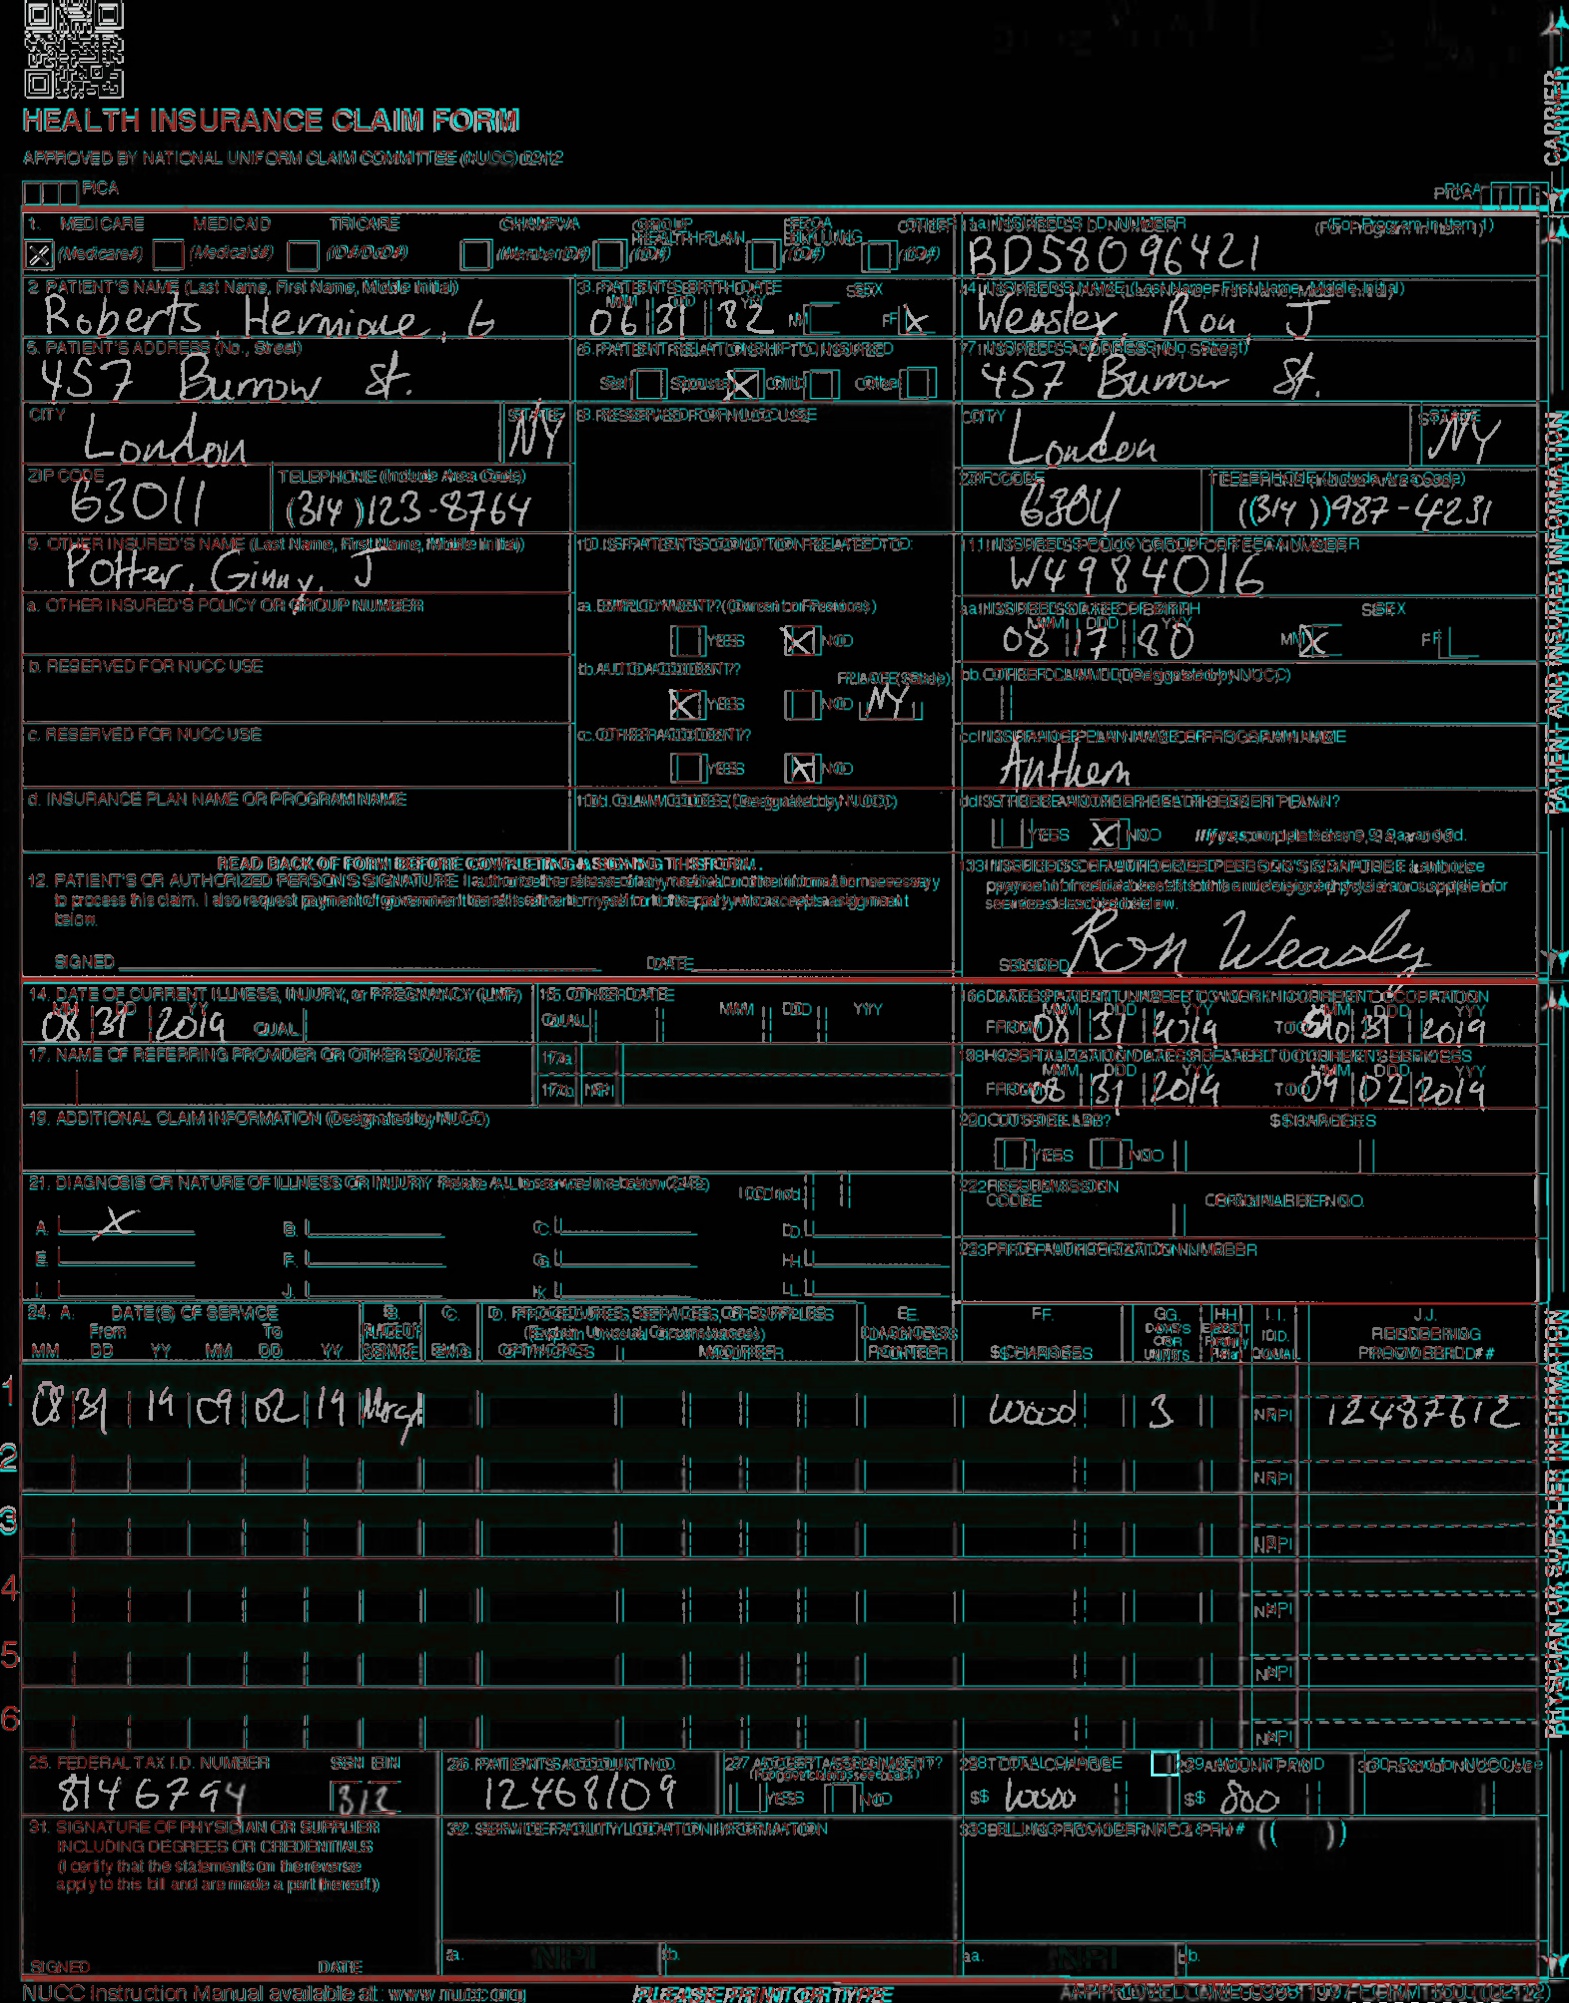 HEALTH INSURANCE CLAIM FORM
APPROVED BY NATIONAL UNIFORM CLAIM COMMITTEE (NUCC) 02/12
PICA
PICA
CARRIER
1. MEDICARE MEDICAID TRICARE CHAMPVA GROUP HEALTH PLAN FECA BLK LUNG OTHER
X (Medicare#) (Medicaid#) (ID#/DoD#) (Member ID#) (ID#) (ID#) (ID#)
1a. INSURED'S I.D. NUMBER (For Program in Item 1)
BD58096421
2. PATIENT'S NAME (Last Name, First Name, Middle Initial)
Roberts, Hermione, G
3. PATIENT'S BIRTH DATE SEX
MM DD YY
06 31 82 M F X
4. INSURED'S NAME (Last Name, First Name, Middle Initial)
Weasley, Ron, J
5. PATIENT'S ADDRESS (No., Street)
457 Burrow St.
6. PATIENT RELATIONSHIP TO INSURED
Self Spouse X Child Other
7. INSURED'S ADDRESS (No., Street)
457 Burrow St.
CITY STATE
London NY
8. RESERVED FOR NUCC USE
CITY STATE
London NY
ZIP CODE TELEPHONE (Include Area Code)
63011 (314)123-8764
ZIP CODE TELEPHONE (Include Area Code)
63011 (314)987-4231
9. OTHER INSURED'S NAME (Last Name, First Name, Middle Initial)
Potter, Ginny, J
10. IS PATIENT'S CONDITION RELATED TO:
11. INSURED'S POLICY GROUP OR FECA NUMBER
W4984016
a. OTHER INSURED'S POLICY OR GROUP NUMBER
a. EMPLOYMENT? (Current or Previous)
YES X NO
a. INSURED'S DATE OF BIRTH SEX
MM DD YY
08 17 80 M X F
b. RESERVED FOR NUCC USE
b. AUTO ACCIDENT? PLACE (State)
X YES NO NY
b. OTHER CLAIM ID (Designated by NUCC)
c. RESERVED FOR NUCC USE
c. OTHER ACCIDENT?
YES X NO
c. INSURANCE PLAN NAME OR PROGRAM NAME
Anthem
d. INSURANCE PLAN NAME OR PROGRAM NAME
10d. CLAIM CODES (Designated by NUCC)
d. IS THERE ANOTHER HEALTH BENEFIT PLAN?
YES X NO If yes, complete items 9, 9a, and 9d.
READ BACK OF FORM BEFORE COMPLETING & SIGNING THIS FORM.
12. PATIENT'S OR AUTHORIZED PERSON'S SIGNATURE I authorize the release of any medical or other information necessary
to process this claim. I also request payment of government benefits either to myself or to the party who accepts assignment
below.
SIGNED DATE
13. INSURED'S OR AUTHORIZED PERSON'S SIGNATURE I authorize
payment of medical benefits to the undersigned physician or supplier for
services described below.
SIGNED Ron Weasly
PATIENT AND INSURED INFORMATION
14. DATE OF CURRENT ILLNESS, INJURY, or PREGNANCY (LMP)
MM DD YY
08 31 2019 QUAL.
15. OTHER DATE
QUAL. MM DD YY
16. DATES PATIENT UNABLE TO WORK IN CURRENT OCCUPATION
MM DD YY MM DD YY
FROM 08 31 2019 TO 10 31 2019
17. NAME OF REFERRING PROVIDER OR OTHER SOURCE
17a.
17b. NPI
18. HOSPITALIZATION DATES RELATED TO CURRENT SERVICES
MM DD YY MM DD YY
FROM 08 31 2019 TO 09 02 2019
19. ADDITIONAL CLAIM INFORMATION (Designated by NUCC)
20. OUTSIDE LAB? $ CHARGES
YES NO
21. DIAGNOSIS OR NATURE OF ILLNESS OR INJURY Relate A-L to service line below (24E) ICD Ind.
A. X B. C. D.
E. F. G. H.
I. J. K. L.
22. RESUBMISSION CODE ORIGINAL REF. NO.
23. PRIOR AUTHORIZATION NUMBER
24. A. DATE(S) OF SERVICE B. C. D. PROCEDURES, SERVICES, OR SUPPLIES E. F. G. H. I. J.
From To PLACE OF (Explain Unusual Circumstances) DIAGNOSIS DAYS OR EPSDT Family ID. RENDERING
MM DD YY MM DD YY SERVICE EMG CPT/HCPCS MODIFIER POINTER $ CHARGES UNITS Plan QUAL. PROVIDER ID. #
1 08 31 19 09 02 19 10000 3 NPI 12487612
2 NPI
3 NPI
4 NPI
5 NPI
6 NPI
PHYSICIAN OR SUPPLIER INFORMATION
25. FEDERAL TAX I.D. NUMBER SSN EIN
8146794 312
26. PATIENT'S ACCOUNT NO.
12468109
27. ACCEPT ASSIGNMENT?
(For govt. claims, see back)
YES NO
28. TOTAL CHARGE
$ 10000
29. AMOUNT PAID
$ 800
30. Rsvd for NUCC Use
31. SIGNATURE OF PHYSICIAN OR SUPPLIER
INCLUDING DEGREES OR CREDENTIALS
(I certify that the statements on the reverse
apply to this bill and are made a part thereof.)
SIGNED DATE
32. SERVICE FACILITY LOCATION INFORMATION
a. NPI b.
33. BILLING PROVIDER INFO & PH # ( )
a. NPI b.
NUCC Instruction Manual available at: www.nucc.org
PLEASE PRINT OR TYPE